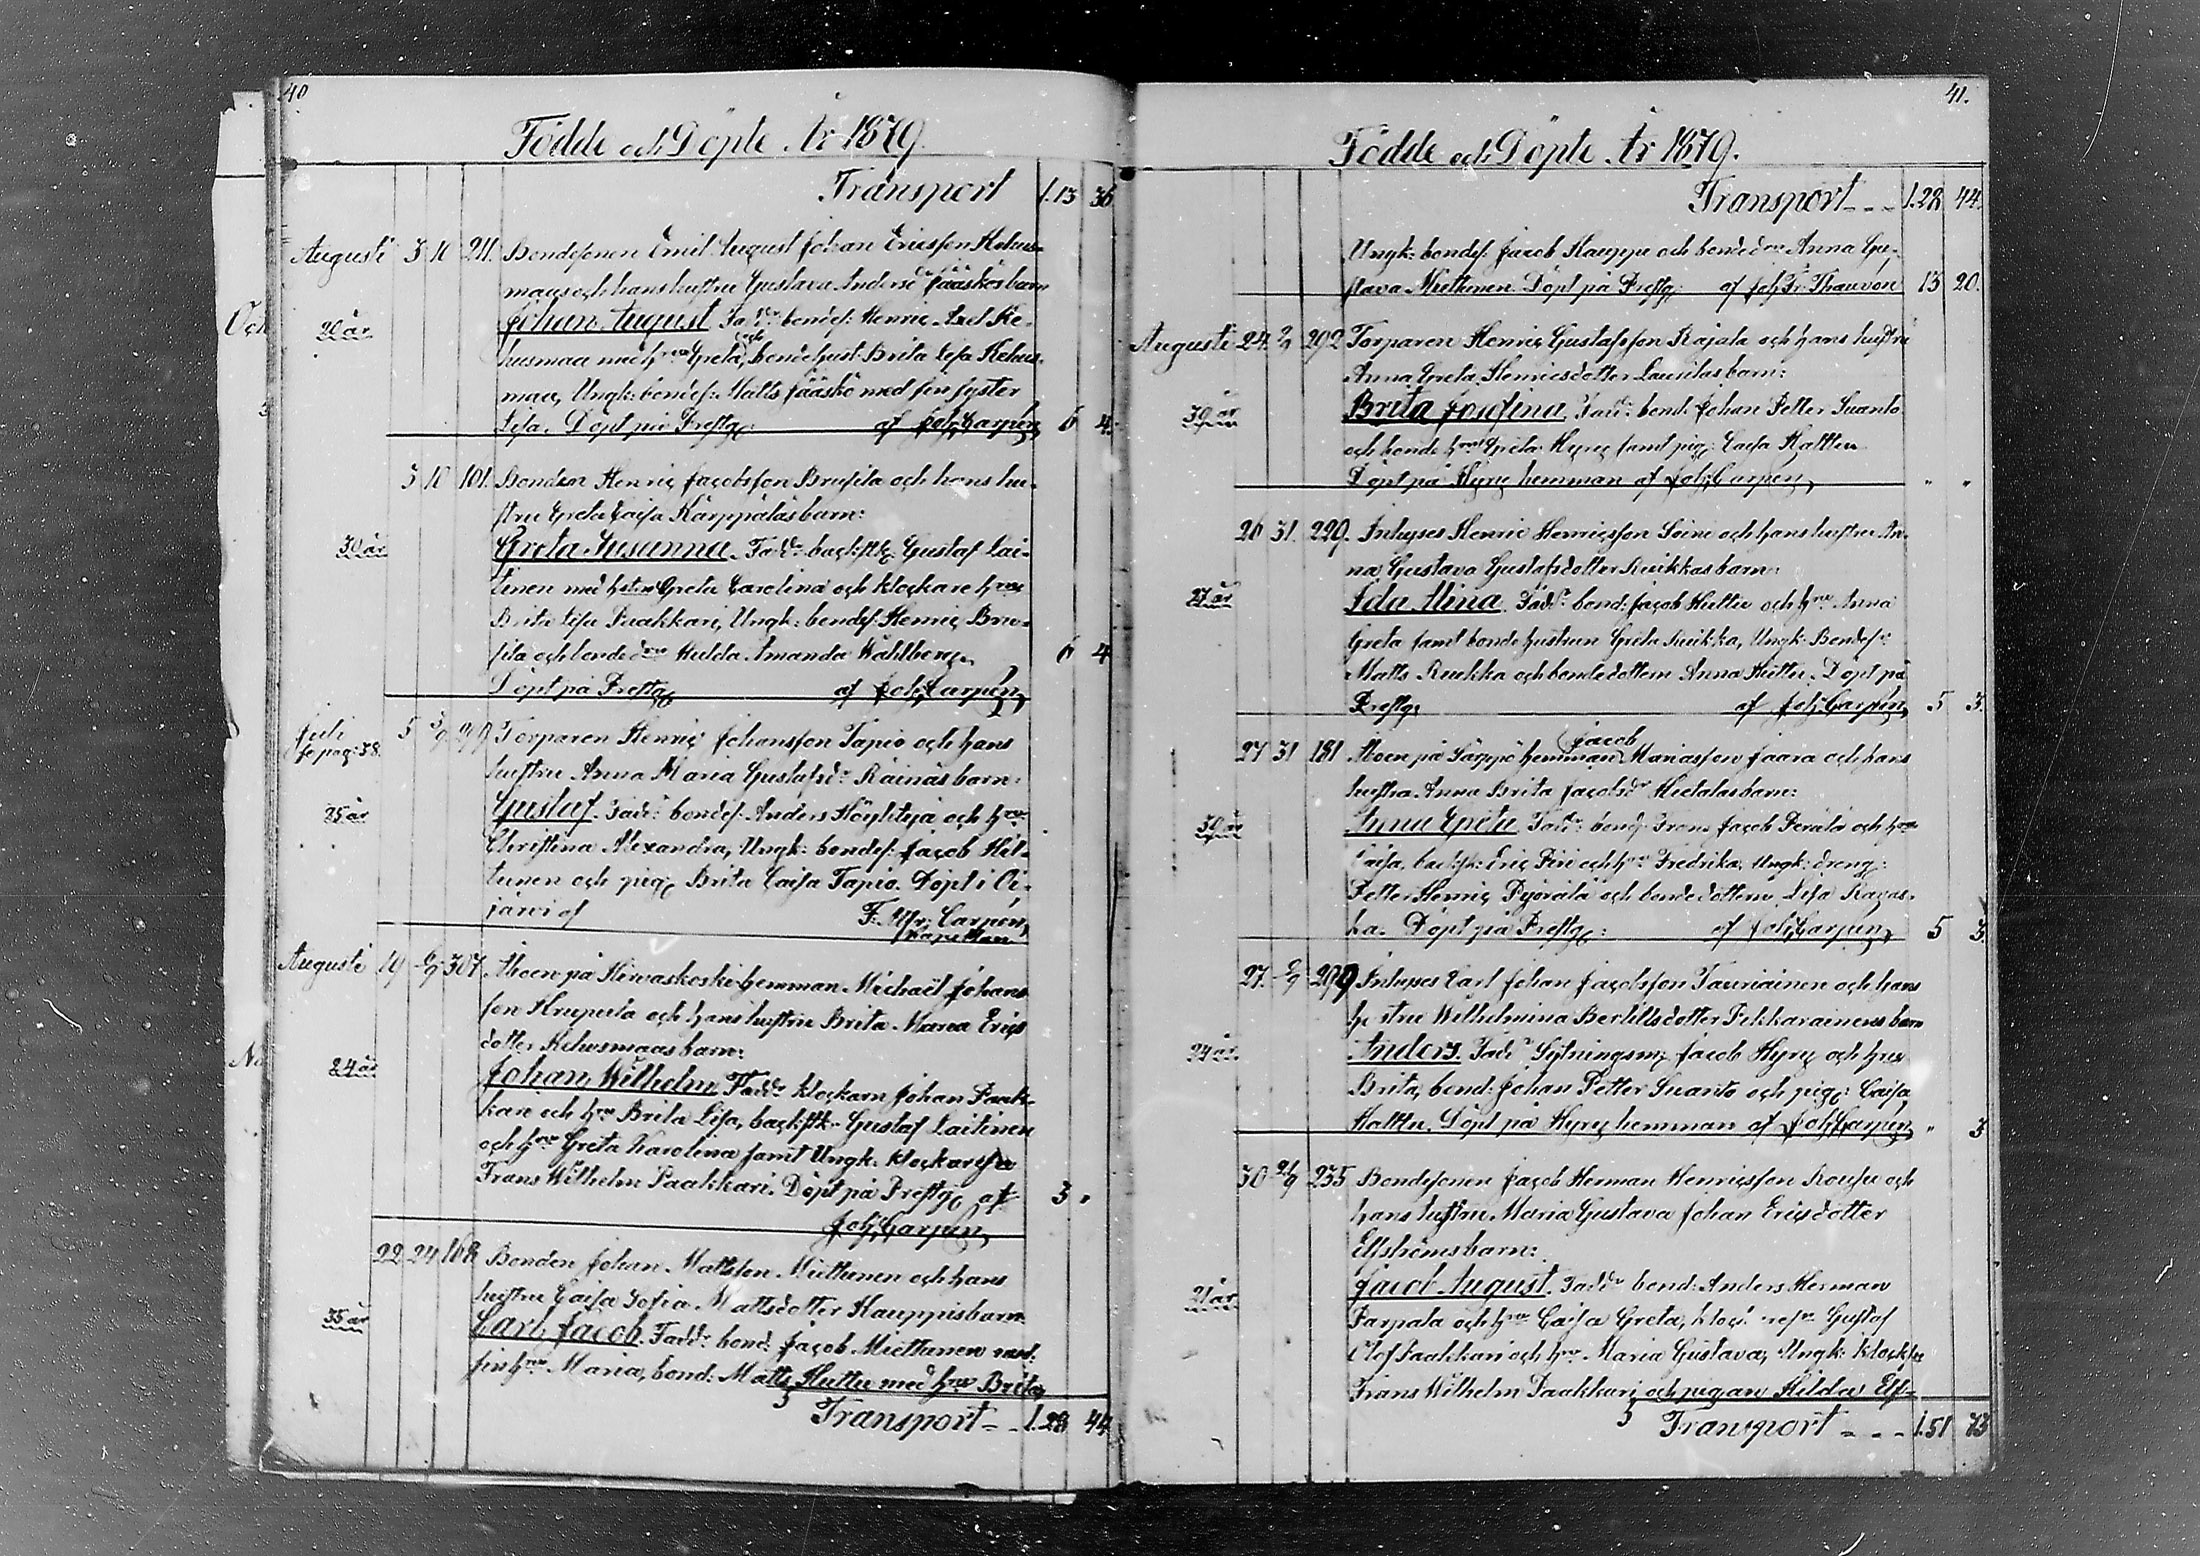 40
Födde och Döpte År 1879.
Transport 1.13 36
Augusti 3 10 211. Bondesonen Emil August Johan Ericsson Kehus-
maa och hans hustru Gustava Andersdr Jääskös barn
20 år Johan August. Fadd: bondes: Henric Axel Ke-
husmaa med hru Greta, och bondehust: Brita Lisa Kehus-
maa, Ungk: bondes: Matts Jääskö med sin syster
Lisa. Döpt på Prestg: af Joh: Carpén, 6 4.
3 10 101. Bonden Henric Jacobsson Brusila och hans hu-
stru Greta Caisa Kärppäläs barn:
30 år Greta Susanna. Fadd: backstk: Gustaf Lai-
tinen med hstru Greta Carolina och klockare hru
Brita Lisa Paakkari, Ungk: bondes: Henric Bru-
sila och bonded: Hulda Amanda Wahlberg. 6 4
Döpt på Prestg: af Joh: Carpén,
Juli 5 Torparen Henric Johansson Tapio och hans
fr pag: 38.
hustru Anna Maria Gustafsdr Räinäs barn:
25 år Gustaf. Fadd: bondes: Anders Höyhtyjä och hru
Christina Alexandra, Ungk: bondes: Jacob Hil-
tunen och pig: Brita Caisa Tapio. Döpt i Oi-
järvi af F. Wr. Carpén,
Kapellan
Augusti 19 307. Åboen på Hirvaskoski hemman Michaël Johans-
son Hrupula och hans hustru Brita Maria Erics
dotter Kehusmaas barn:
24 år Johan Wilhelm. Fadd: klockarn Johan Paak-
kari och hru Brita Lisa, backstk: Gustaf Laitinen
och hru Greta Karolina samt Ungk: klockareson
Frans Wilhelm Paakkari. Döpt på Prestg: af 3 "
Joh: Carpén,
22 24 168 Bonden Johan Mattsson Miettunen och hans
hustru Caisa Sofia Mattsdotter Kauppis barn
35 år Carl Jacob. Fadd: bond: Jacob Miettunen med
sin hru Maria, bond: Matts Huttu med hru Brita,
5 Transport 1.28 44
41.
Födde och Döpte År 1879.
Transport 1.28 44.
Ungk: bondes: Jacob Kauppi och bondedr Anna Gu-
stava Miettunen. Döpt på Prestg: af Joh: Fr. Thauvón 13 20.
Augusti 24. 292 Torparen Henric Gustafsson Rajala och hans hustru
Anna Greta Henricsdotter Laurilas barn:
30 år Brita Josefina. Fadd: bond: Johan Petter Suanto
och bonde hru Greta Hyry samt pig: Caisa Hattu
Döpt på Hyry hemman af Joh: Carpén, " "
26 31. 229. Inhyses Henric Henricsson Soini och hans hustru An-
na Gustava Gustafsdotter Kuikkas barn:
27 år Ida Mina. Fadd: bond: Jacob Huttu och hru Anna
Greta samt bondehustrun Greta Kuikka, Ungk: Bondes:
Matts Kuikka och bondedottern Anna Huttu. Döpt på
Prestg: af Joh: Carpén, 5 3.
27 31 181 Åboen på Särppö hemman Jacob Mariasson Jaara och hans
hustru Anna Brita Jacobsdr Hietalas barn:
30 år Anna Greta. Fadd: bond: Frans Jacob Perälä och hru
Caisa, backstk: Eric Piri och hru Fredrika, Ungk: dreng:
Petter Henric Pyörälä och bondedottern Lisa Kagas-
ha. Döpt på Prestg: af Joh: Carpén, 5 3
27. 299 Inhyses Carl Johan Jacobsson Tauriainen och hans
hustru Wilhelmina Bertillsdotter Pekkarainens barn
24 år Anders. Fadd: Sytningsm: Jacob Hyry och hru
Brita, bond: Johan Petter Suanto och pig: Caisa
Hattu. Döpt på Hyry hemman af Joh: Carpén, " 3
30 21/9 235 Bondesonen Jacob Herman Henricsson Rousu och
hans hustru Maria Gustava Johan Ericsdotter
Elfströms barn:
21 år Jacob August. Fadd: bond: Anders Herman
Parpala och hru Caisa Greta, Gustaf
Olof Paakkari och hru Maria Gustava, Ungk: klocks:
Frans Wilhelm Paakkari och pigan Hilda Elf-
5 Transport 1.51 73